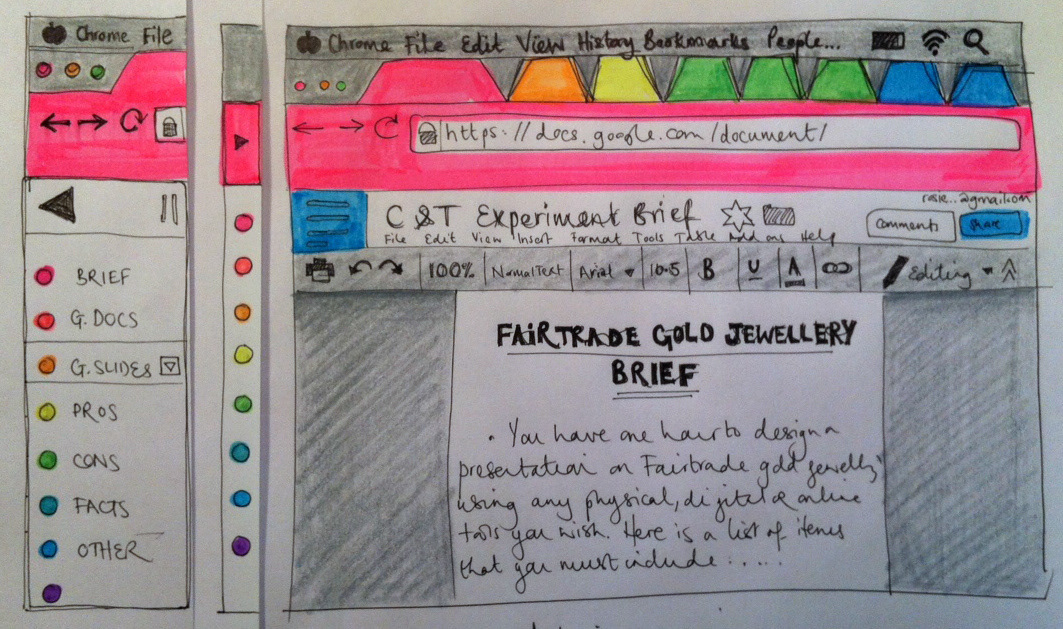 Chrome File
BRIEF
G.DOCS
G.SLIDES
PROS
CONS
FACTS
OTHER
Chrome File Edit View History Bookmarks People...
https://docs.google.com/document/
rosie...@gmail.com
C &T Experiment Brief
comments
share
File Edit View Insert Format Tools Table Add ons Help
100% Normal Text Arial 10.5 B U A Editing
FAIRTRADE GOLD JEWELLERY
BRIEF
• You have one hour to design a
presentation on Fairtrade gold jewellry,
using any physical, digital or online
tools you wish. Here is a list of items
that you must include.....